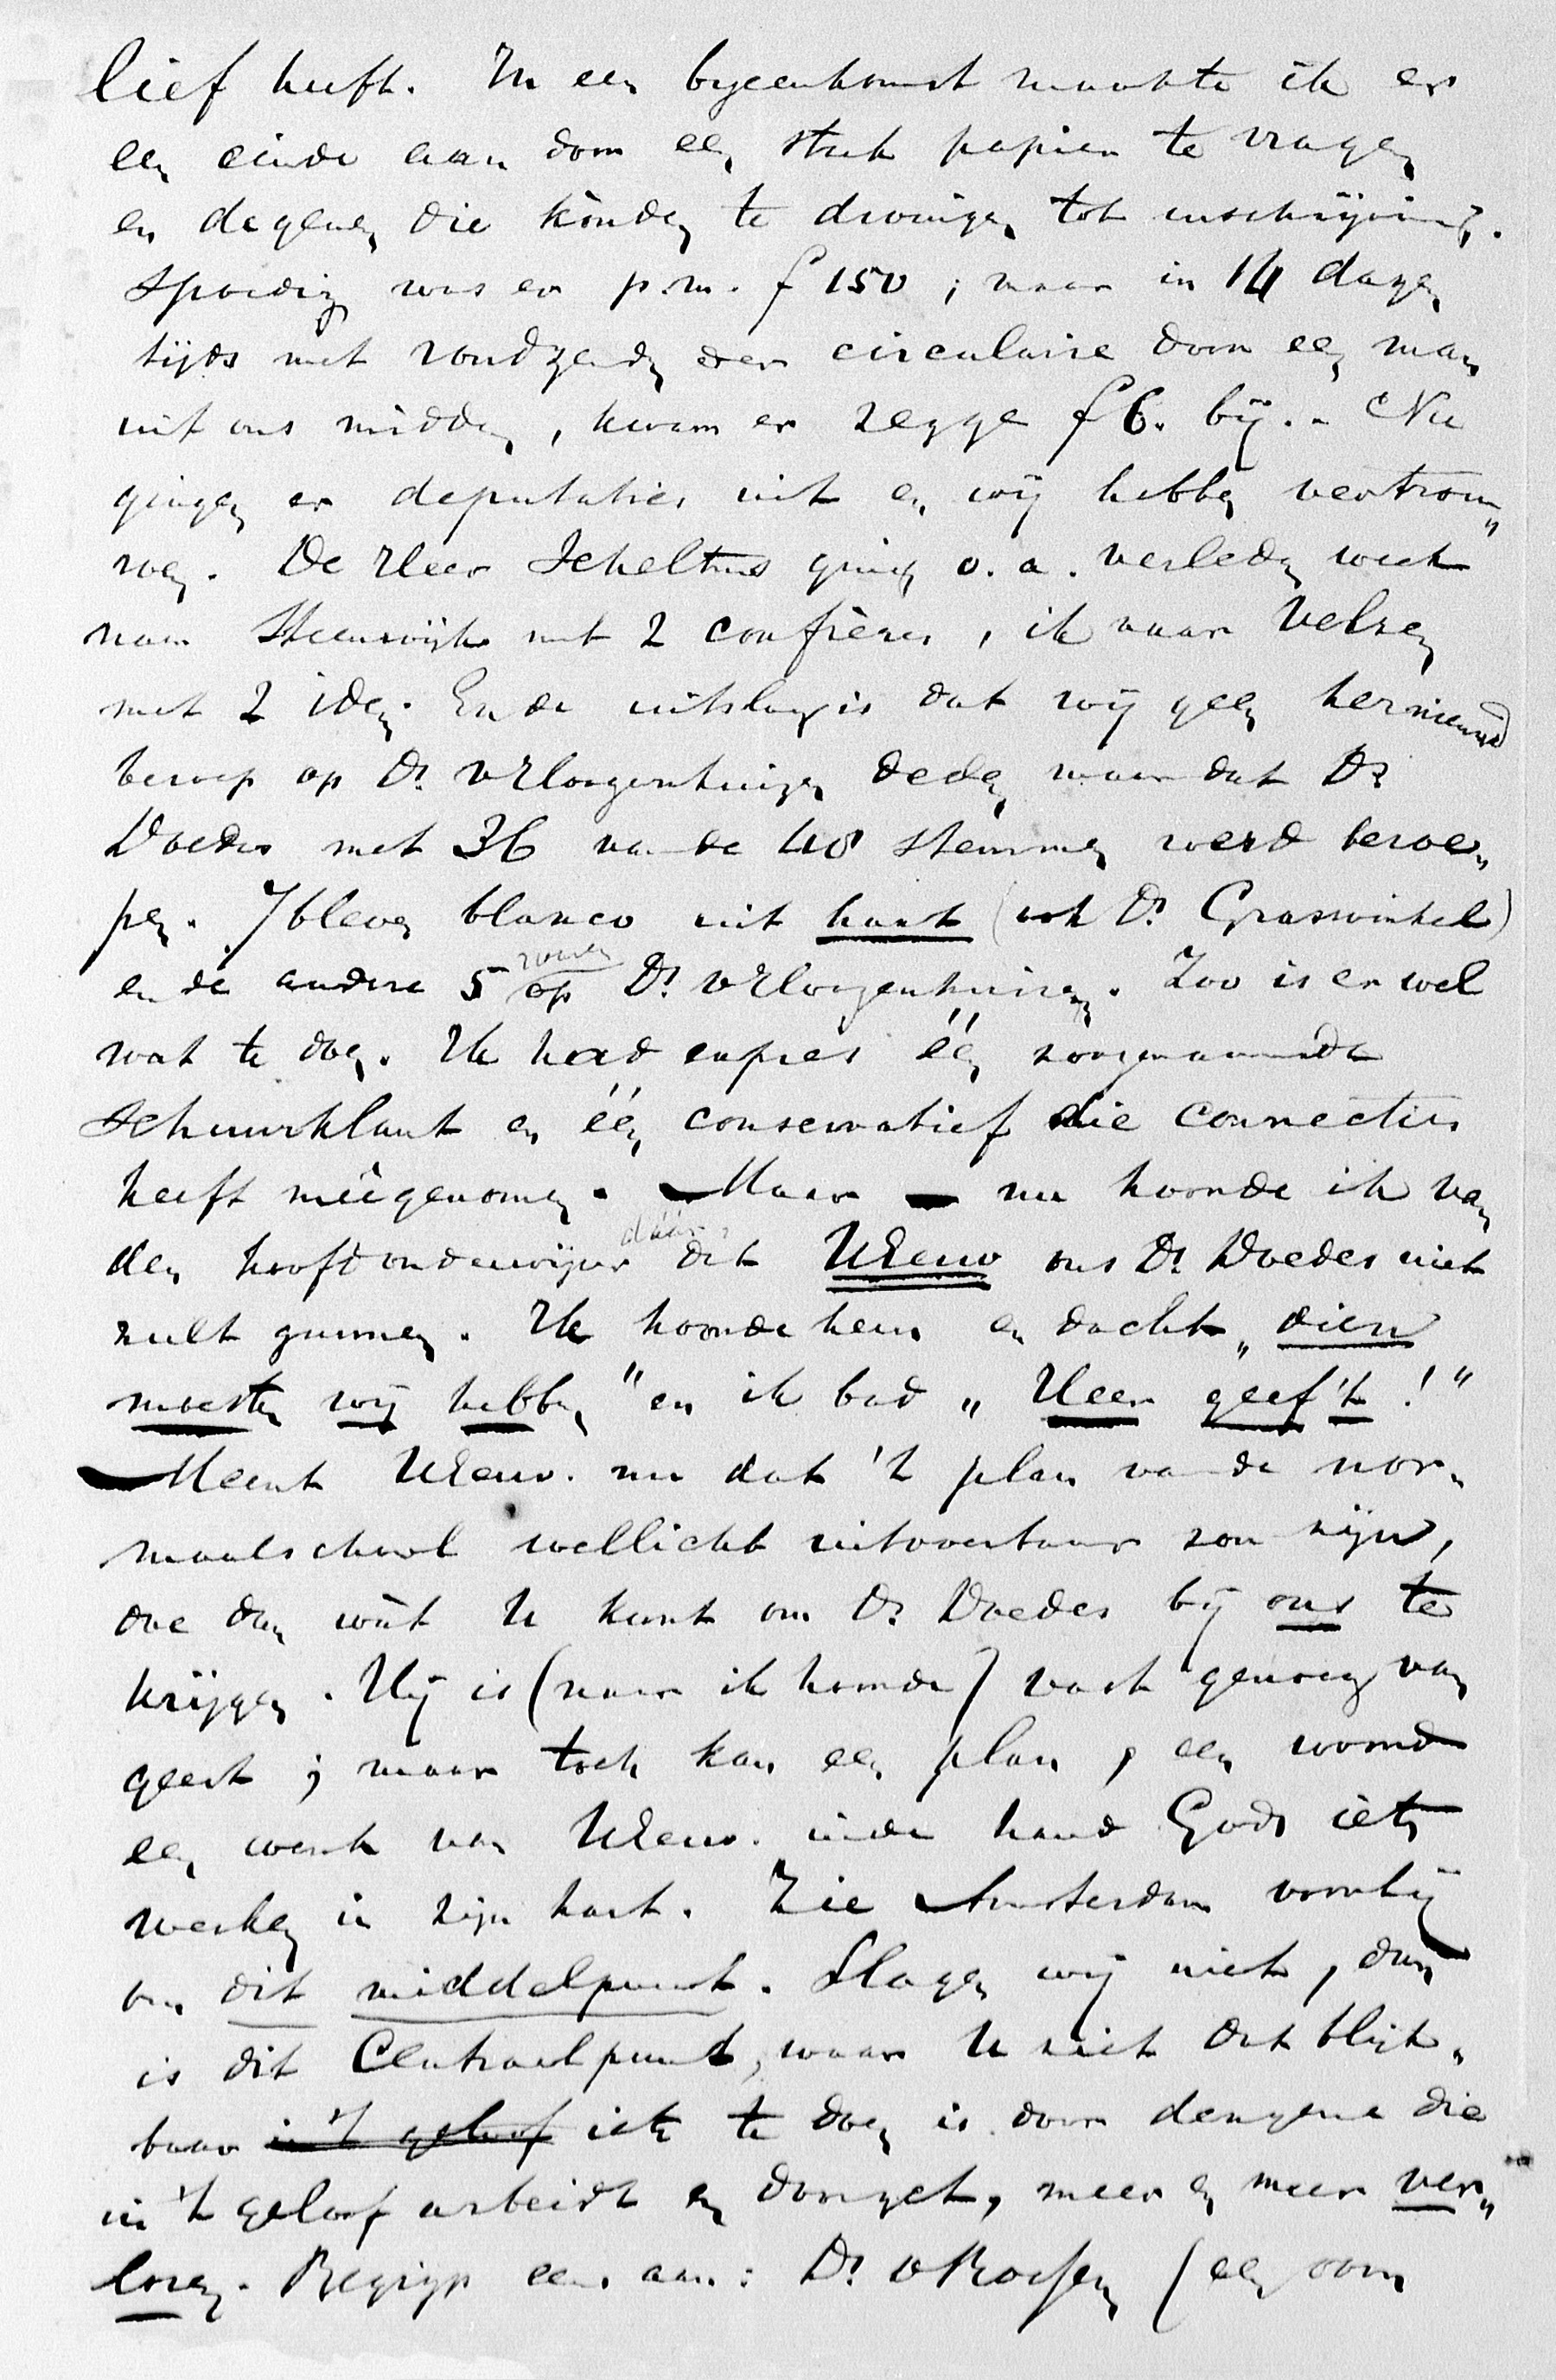 lief heeft. In een byeenkomst maakte ik er
een einde aan door een stuk papier te vragen
en degenen die kònden te dwingen tot inschrijving.
Spoedig was er p.m. f 150; maar in 14 dagen
tijds met rondzenden der circulaire door een man
uit ons midden, kwam er zegge f 6. bij. - Nu
gingen er deputaties uit en wij hebben vertrou„
wen. De Heer Scheltus ging o.a. verleden week
naar Steenwijk met 2 confrères, ik naar Velsen
met 2 idem. En de uitslag is dat wij geen hernieuwd
beroep op Ds vHoogenhuizen deden maar dat Ds
Doedes met 36 van de 48 stemmen werd beroe„
pen. 7 bleven blanco uit haat (ook Ds Graswinkel)
en de andere 5 waren op Ds vHoogenhuizen. Zoo is er wel
wat te doen. Ik had expres één zoogenaamde
Schuurklant en één conservatief die connecties
heeft meêgenomen. — Maar — nu hoorde ik van
den hoofdonderwijzer dáár, dat UEerw ons Ds Doedes niet
zult gunnen. Ik hoorde hem en dacht „dien
moesten wij hebben" en ik bad „Heer geef 't!"
— Meent UEerw. nu dat 't plan van de nor„
maalschool wellicht uitvoerbaar zou zijn,
doe dan wàt U kunt om Ds Doedes bij ons te
krijgen. Hij is (naar ik hoorde) vast genoeg van
geest; maar toch kan een plan, een woord
een wenk van UEerw. in de hand Gods iets
werken in zijn hart. Zie Amsterdam voorbij
om dit middelpunt. Slagen wij niet, dan
is dit Centraalpunt, waar U ziet dat blijk„
baar in 't geloof iets te doen is door dengene die
in 't geloof arbeidt en doorzet, meer en meer ver„
loren. Begrijp eens aan: Ds (een oom